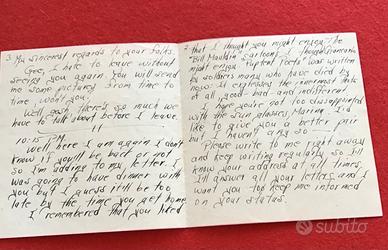 3. My sincerest regards to your folks.
Gee, I hate to leave without
seeing you again. You will send
me some pictures from time to
time, won't you.
Well gosh there's so much we
have to talk about before I leave.
10:15 PM
Well here I am again I don't
know if you'll be back or not
so I'm adding to my letter. I
was going to have dinner with
you but I guess it'll be too
late by the time you get home.
I remembered that you liked
2.
that I thought you might enjoy - the
"Bill Mauldin" cartoons. I thought
might enjoy. "Puptent Poets" was written
by soldiers many who have died by
now. It expresses the innermost thots
of all good, bad and indifferent.
I hope you're not too disappointed
with the sun glasses, Marine. I'd
like to give you a better pair
but haven't any so -
Please write to me right away
and keep writing regularly so I'll
know your address at all times.
I'll answer all your letters and I
want you too keep me informed
on your status.
subito